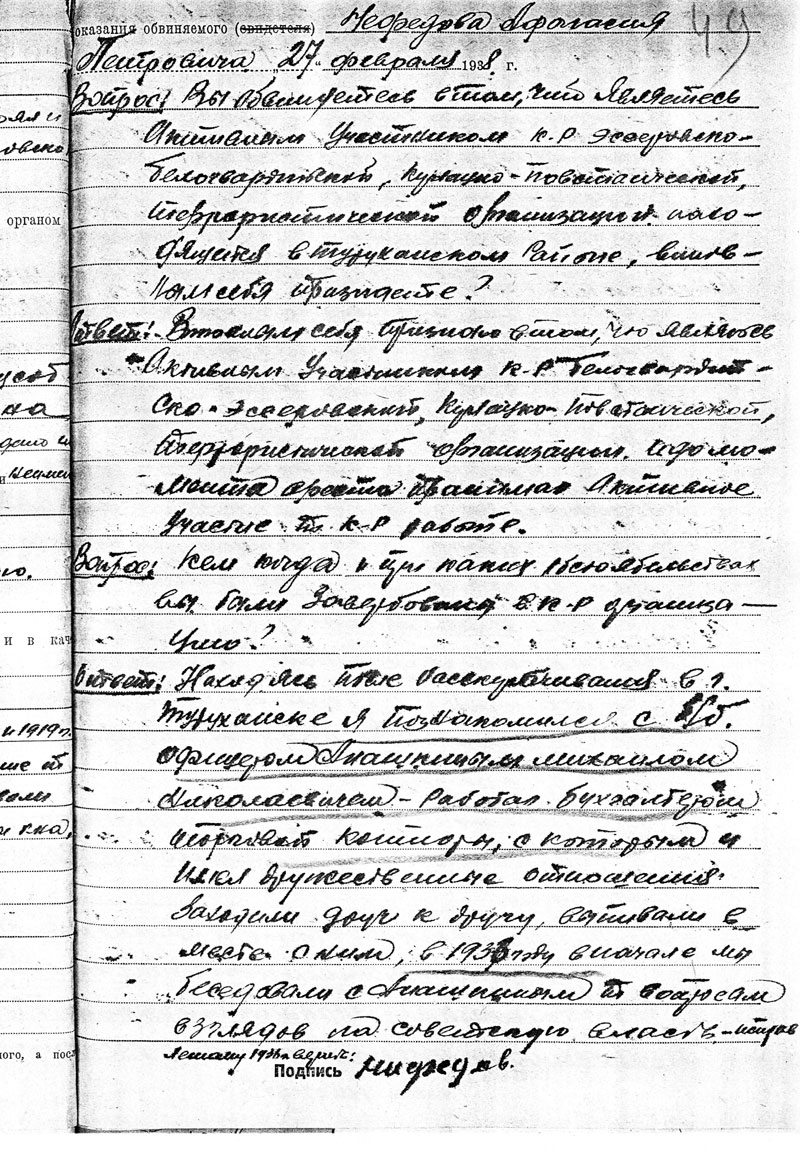 оказания обвиняемого (свидетеля) Нефедова Афанасия
49
Петровича „27“ февраля 1938 г.
Вопрос: Вы обвиняетесь в том, что являетесь
Активным участником к-р эсеровско-
белогвардейской, кулацко-повстанческой,
террористической организации нахо-
дящейся в туруханском районе, винов-
ным себя признаете?
Ответ: Виновным себя признаю в том, что являюсь
Активным участником к-р белогвардей-
ско-эссеровской, кулацко-повстанческой,
террористической организации. и до мо-
мента ареста принимал Активное
участие по к-р работе.
Вопрос: Кем когда и при каких обстоятельствах
вы были завербованы в к-р организа-
цию?
Ответ: Находясь после раскулачивания в г.
Туруханске я познакомился с б/б.
офицером Анашкиным михаилом
Николаевичем - работал бухгалтером
торговой конторы, с которым и
имел дружественные отношения.
Заходили друг к другу, выпивали в
месте с ним, в 1933 году вначале мы
беседовали с Анашкиным по вопросам
взглядов на советскую власть -
верить:
Подпись Нифедов.
органом
и в кач
и 1919 г.
ного, а пос